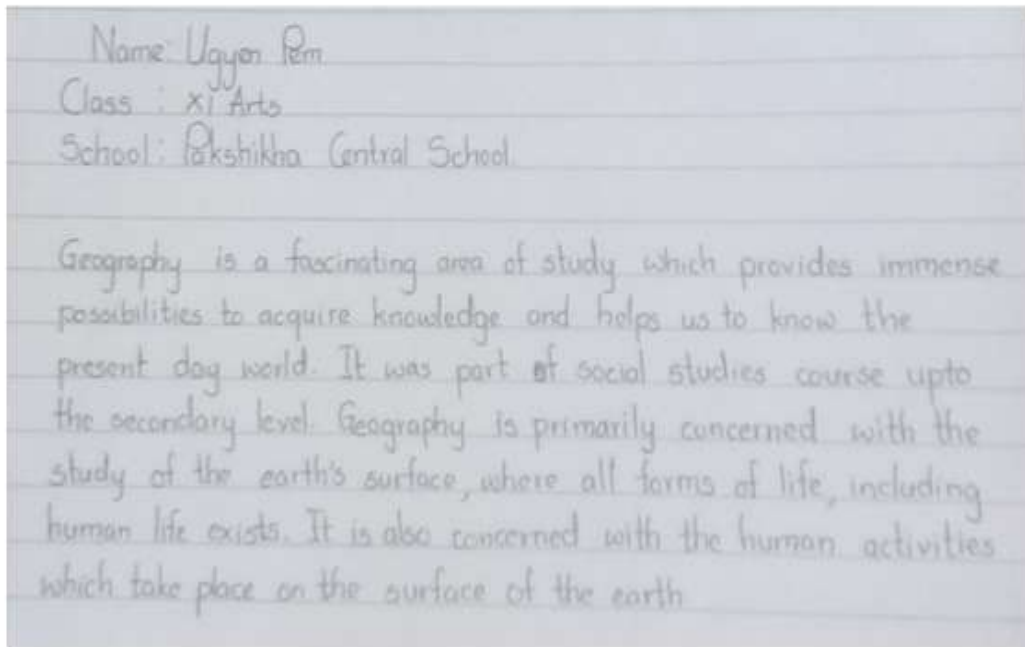 Name: Ugyen Pem
Class : XI Arts
School: Pakshikha Central School
Geography is a fascinating area of study which provides immense
possibilities to acquire knowledge and helps us to know the
present day world. It was part of social studies course upto
the secondary level. Geography is primarily concerned with the
study of the earth's surface, where all forms of life, including
human life exists. It is also concerned with the human activities
which take place on the surface of the earth